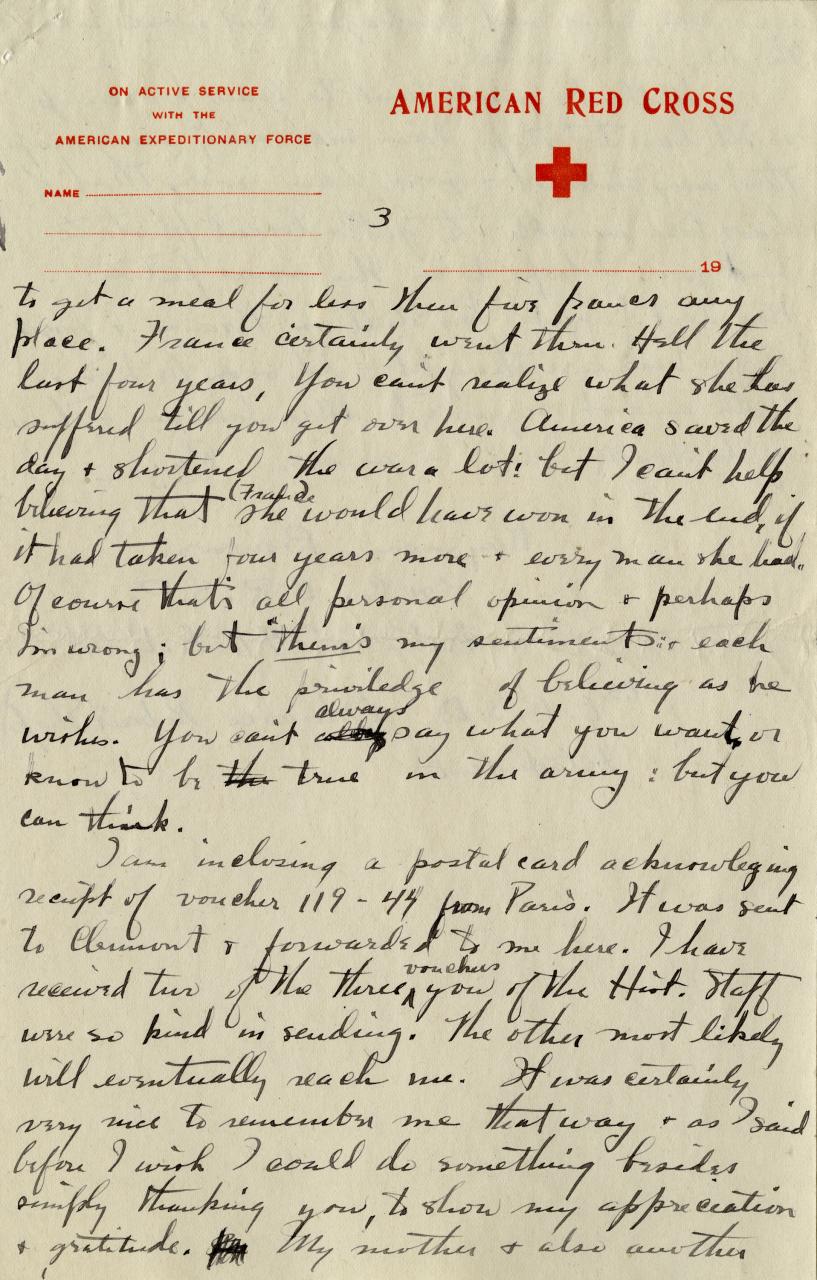 ON ACTIVE SERVICE
WITH THE
AMERICAN EXPEDITIONARY FORCE
AMERICAN RED CROSS
NAME
3
19
to get a meal for less then five francs any
place. France certainly went thru. Hell the
last four years, You can't realize what she has
suffered till you get over here. America saved the
day + shortened the war a lot: but I can't help
believing that she (France) would have won in the end, if
it had taken four years more + every man she had.
Of course that's all personal opinion + perhaps
I'm wrong; but "them's my sentiments": + each
man has the priviledge of believing as he
wishes. You can't always say what you want, or
know to be the true in the army: but you
can think.
I am inclosing a postal card acknowleging
receipt of voucher 119-44 from Paris. It was sent
to Clermont + forwarded to me here. I have
received two of the three vouchers you of the Hist. Staff
were so kind in sending. The other most likely
will eventually reach me. It was certainly
very nice to remember me that way + as I said
before I wish I could do something besides
simply thanking you, to show my appreciation
+ gratitude. My mother + also another